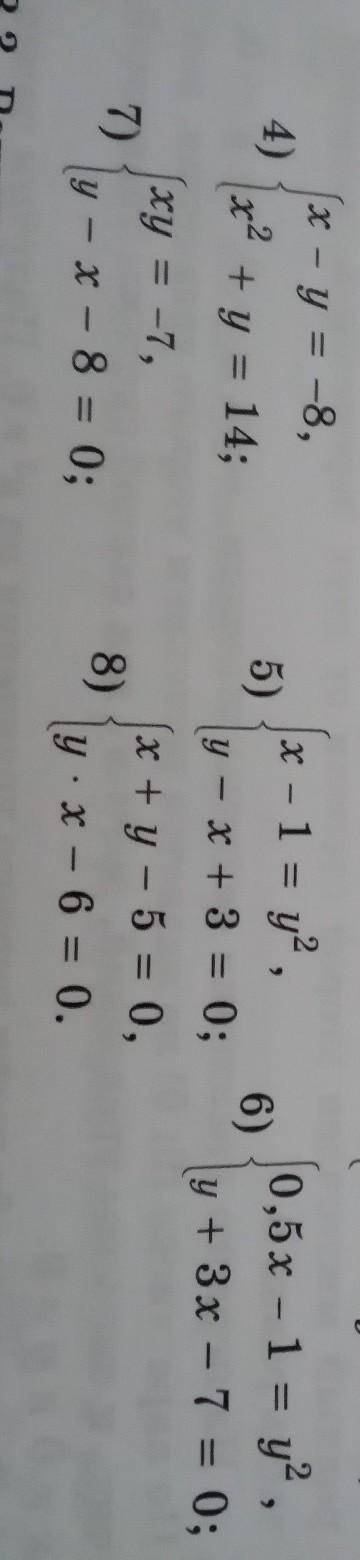 4) { x − y = −8,
x² + y = 14;
5) { x − 1 = y²,
y − x + 3 = 0;
6) { 0,5x − 1 = y²,
y + 3x − 7 = 0;
7) { xy = −7,
y − x − 8 = 0;
8) { x + y − 5 = 0,
y · x − 6 = 0.